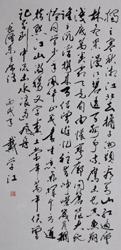 独立寒秋湘江北去橘子洲头看万山红遍层
林尽染漫江碧透百舸争流鹰击长空鱼翔
浅底万类霜天竞自由怅寥廓问苍茫大地
谁主沉浮携来百侣曾游忆往昔峥嵘岁月
稠恰同学少年风华正茂书生意气挥斥方遒
指点江山激扬文字粪土当年万户侯曾
记否到中流击水浪遏飞舟
毛泽东 丙戌年 戴学江